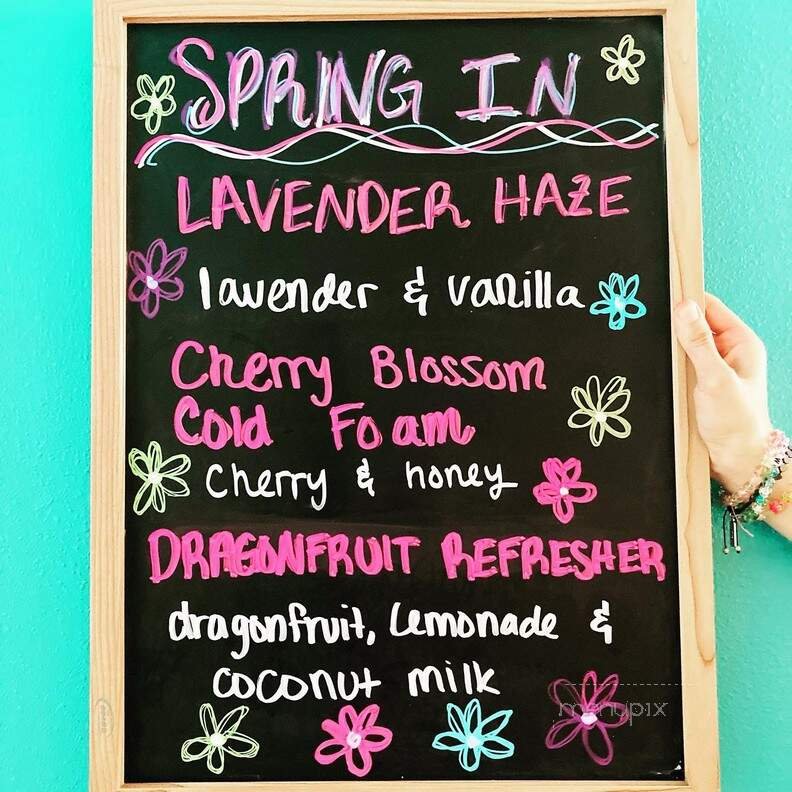 SPRING IN
LAVENDER HAZE
lavender & vanilla
Cherry Blossom
Cold Foam
Cherry & honey
DRAGONFRUIT REFRESHER
dragonfruit, Lemonade &
coconut milk
menupix